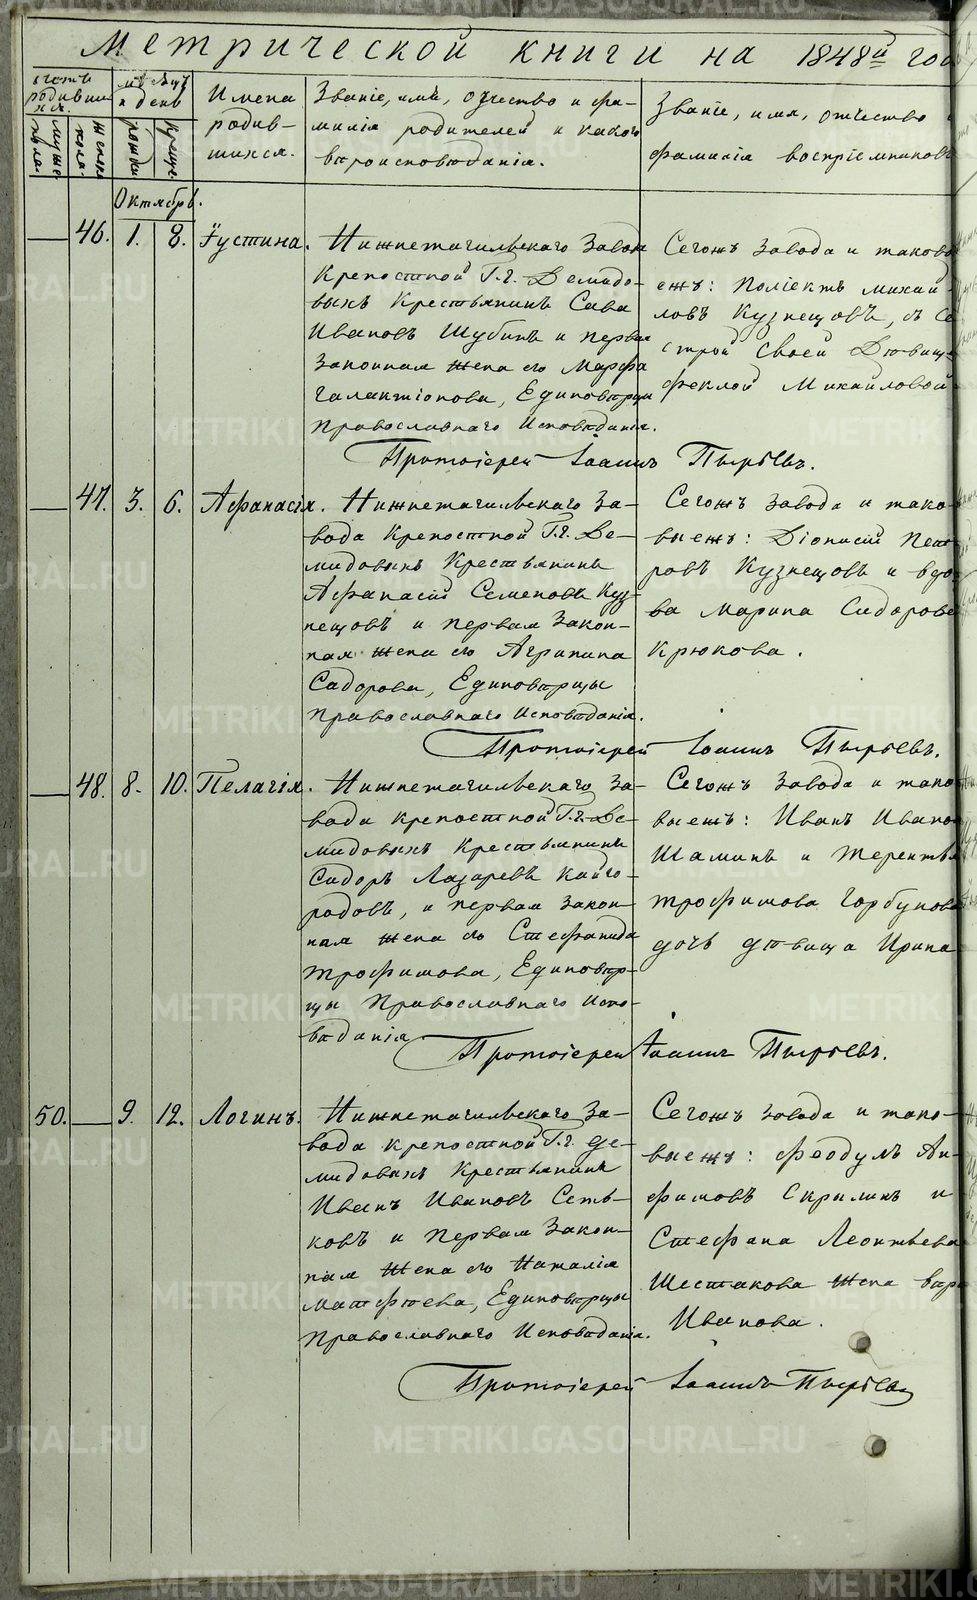 Метрической книги на 1848й год
Счетъ родившихся.
Мужеска пола.
Женска пола.
Мѣсяцъ и день
рожден.
крещен.
Имена родившихся.
Званіе, имя, отчество и фамилія родителей и какого вѣроисповѣданія.
Званіе, имя, отчество и фамилія воспріемниковъ
Октябрь.
— 46. 1. 8. Їустина.
Нижнетагильскаго Завода
Крепостной Г.г. Демидо-
выхъ Крестьянинъ Сава
Ивановъ Шубинъ и первая
законная жена его Марфа
Галактіонова, Единовѣрцы
Православнаго Исповѣданія.
Сегожъ завода и таково-
ежъ: Поліектъ Михай-
ловъ Кузнецовъ, съ Се-
строй своей Дѣвицей
Феклой Михайловой
Протоіерей Іоаннъ Пырьевъ.
— 47. 3. 6. Афанасія.
Нижнетагильскаго За-
вода Крепостной Г.г. Де-
мидовыхъ Крестьянинъ
Афанасій Семеновъ Куз-
нецовъ и первая закон-
ная жена его Агрипина
Сидорова, Единовѣрцы
Православнаго Исповѣданія.
Сегожъ завода и тако-
выежъ: Діонисій Пет-
ровъ Кузнецовъ и вдо-
ва Марина Сидорова
Крюкова.
Протоіерей Іоаннъ Пырьевъ.
— 48. 8. 10. Пелагія.
Нижнетагильскаго За-
вода крепостной Г.г. Де-
мидовыхъ Крестьянинъ
Сидоръ Лазаревъ Кайго-
родовъ, и первая закон-
ная жена его Стефанида
Трофимова, Единовѣр-
цы Православнаго Испо-
вѣданія
Сегожъ завода и тако-
выежъ: Иванъ Ивано
Шаминъ и Терентья
Трофимова Горбунова
дочь дѣвица Ирина
Протоіерей Іоаннъ Пырьевъ.
50. — 9. 12. Логинъ.
Нижнетагильскаго За-
вода крепостной Г.г. Де-
мидовыхъ Крестьянинъ
Иванъ Ивановъ Сень-
ковъ и первая закон-
ная жена его Наталія
Матфеева, Единовѣрцы
Православнаго Исповѣданія.
Сегожъ завода и тако-
выежъ: Феодулъ Ан-
фимовъ Скрипинъ и
Стефана Леонтьева
Шестакова жена Вѣра
Иванова.
Протоіерей Іоаннъ Пырьевъ
METRIKI.GASO-URAL.RU